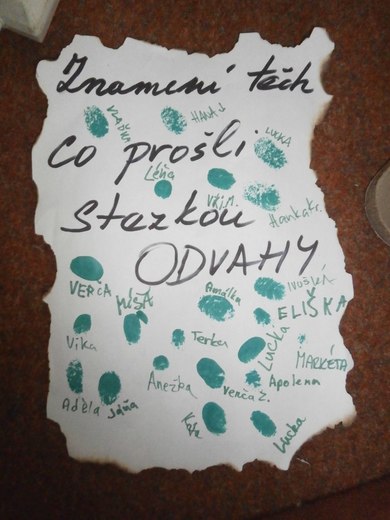 Znamení těch
VLAĎKA
HANA J
LUCKA
co prošli
Léňa
VIKI M.
Hanka Kr.
stezkou
ODVAHY
VERČA
MÍŠA
Amálka
IVUŠKA
ELIŠKA
Vilka
Terka
LUCKA
MARKÉTA
Anežka
Verča Z.
Apolena
Adéla
Jáňa
Lucka